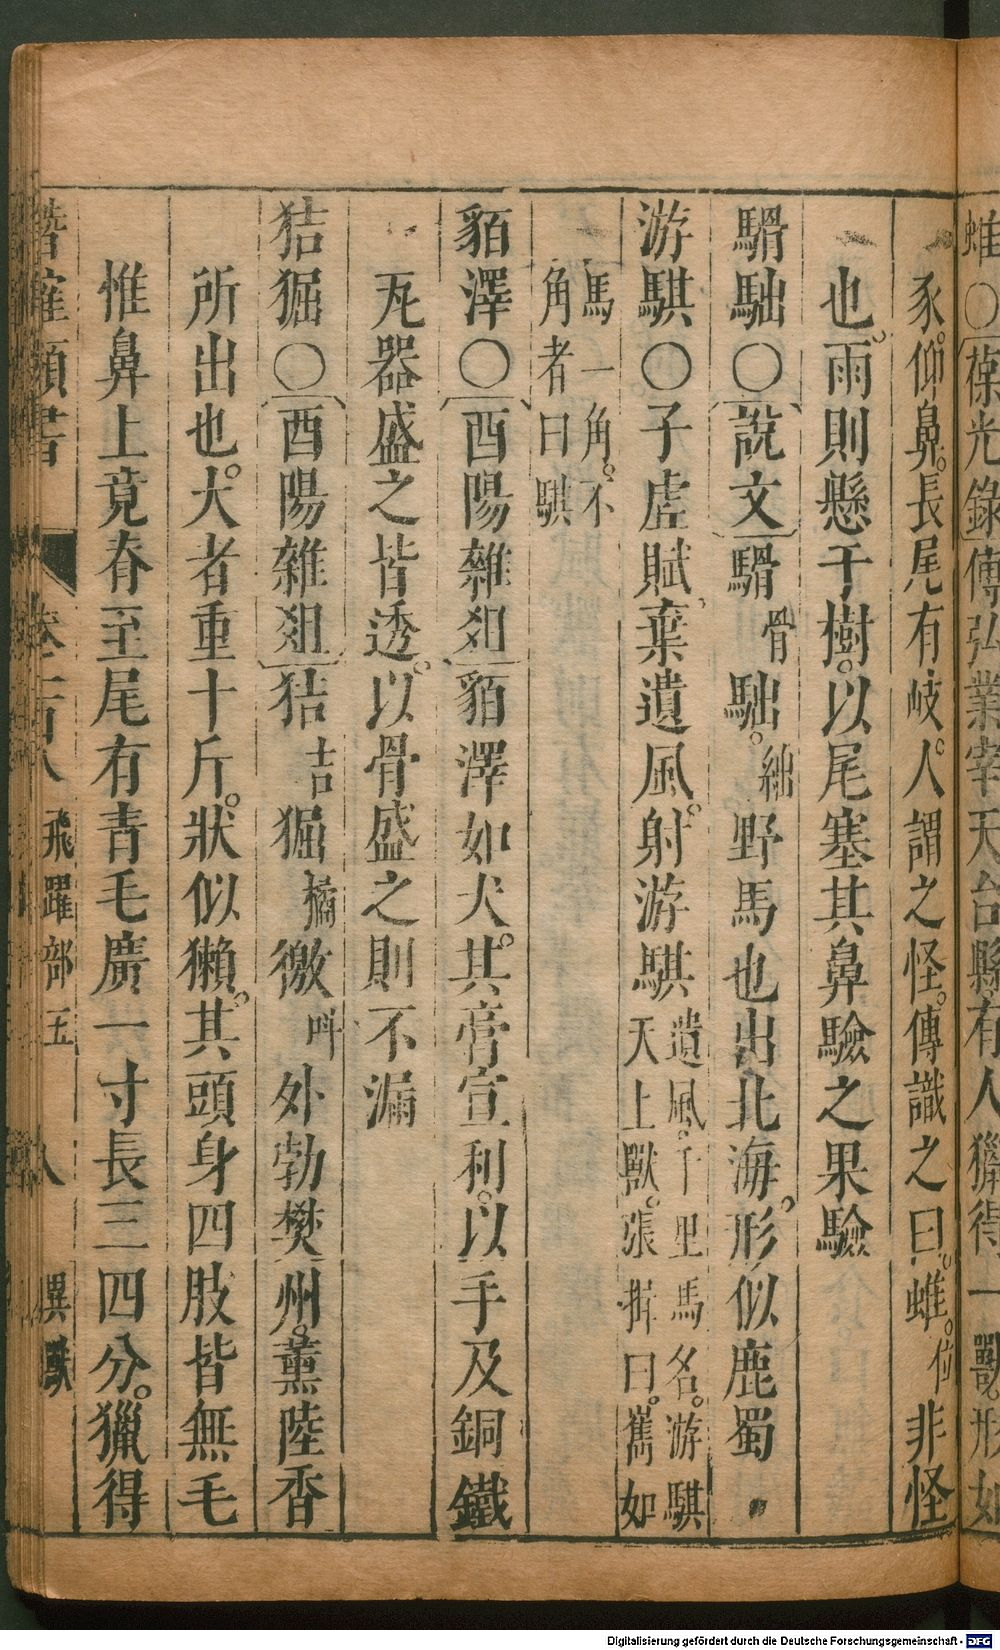 蜼〇葆光錄傅弘業宰天台縣有人獵得一獸形如
豕仰鼻長尾有岐人謂之怪傅識之曰蜼位非怪
也雨則懸于樹以尾塞其鼻驗之果驗
騊駼〇說文
野馬也出北海形似鹿蜀
游騏〇子虛賦棄遺風射游騏遺風千里馬名游騏
天上獸張揖曰雟如
馬一角不
角者曰騏
貊澤〇酉陽雜俎貊澤如犬其膏宣利以手及銅鐵
瓦器盛之皆透以骨盛之則不漏
狤𤟎〇酉陽雜俎狤吉𤟎橘徼呌外勃樊州薰陸香
所出也大者重十斤狀似獺其頭身四肢皆無毛
惟鼻上竟脊至尾有青毛廣一寸長三四分獵得
潛確類書 飛躍部五 八 異獸
Digitalisierung gefördert durch die Deutsche Forschungsgemeinschaft - DFG